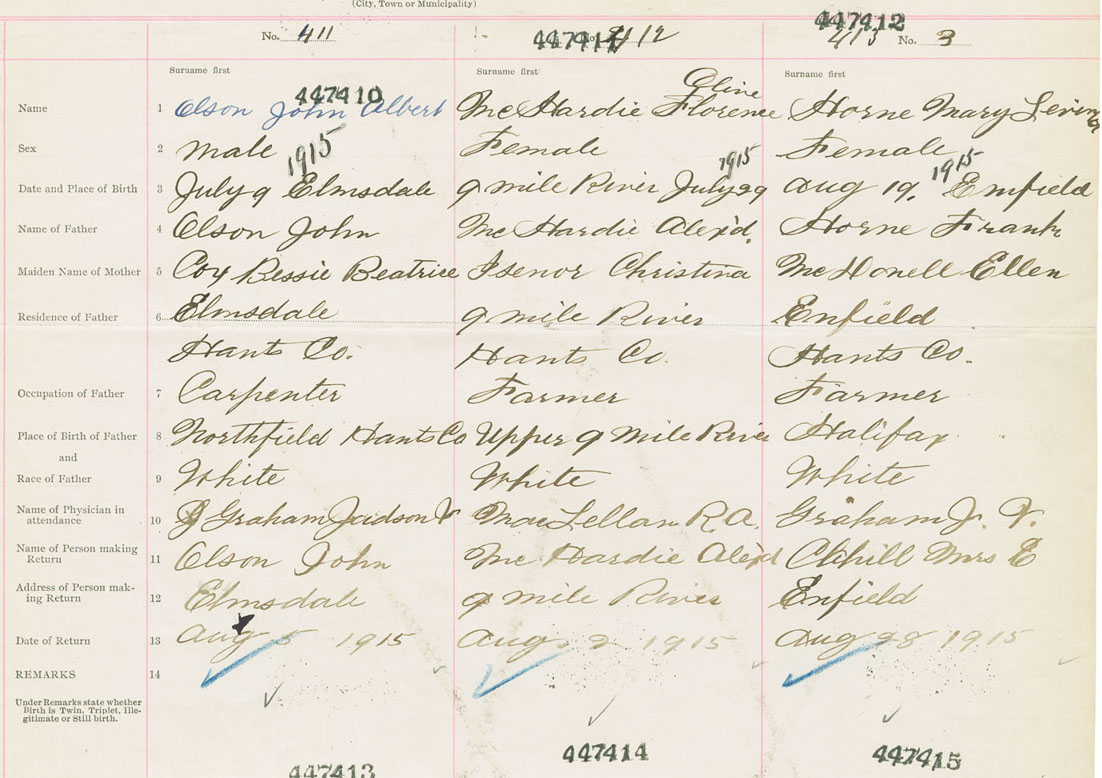 (City, Town or Municipality)
No. 411
447411 No. 412
447412 413 No. 3
Surname first
Surname first
Surname first
447410
Name 1 Olson John Albert
Mc Hardie Florence Oline
Horne Mary
Sex 2 Male
Female
Female
Date and Place of Birth 3 July 9 1915 Elmsdale
9 mile River July 29 1915
Aug 19. 1915 Enfield
Name of Father 4 Olson John
Mc Hardie Alex'd.
Horne Frank
Maiden Name of Mother 5 Cox Bessie Beatrice
Isenor Christina
Mc Donell Ellen
Residence of Father 6 Elmsdale
9 mile River
Enfield
Hants Co.
Hants Co.
Hants Co.
Occupation of Father 7 Carpenter
Farmer
Farmer
Place of Birth of Father 8 Northfield Hants Co
Upper 9 Mile River
Halifax
and
Race of Father 9 White
White
White
Name of Physician in
attendance 10 Graham Judson V
MacLellan R.A.
Graham J. V.
Name of Person making
Return 11 Olson John
Mc Hardie Alex'd
Mrs E
Address of Person mak-
ing Return 12 Elmsdale
9 mile River
Enfield
Date of Return 13 Aug 5 1915
Aug. 2 1915
Aug 28 1915
REMARKS 14
Under Remarks state whether
Birth is Twin, Triplet, Ille-
gitimate or Still birth.
447413
447414
447415